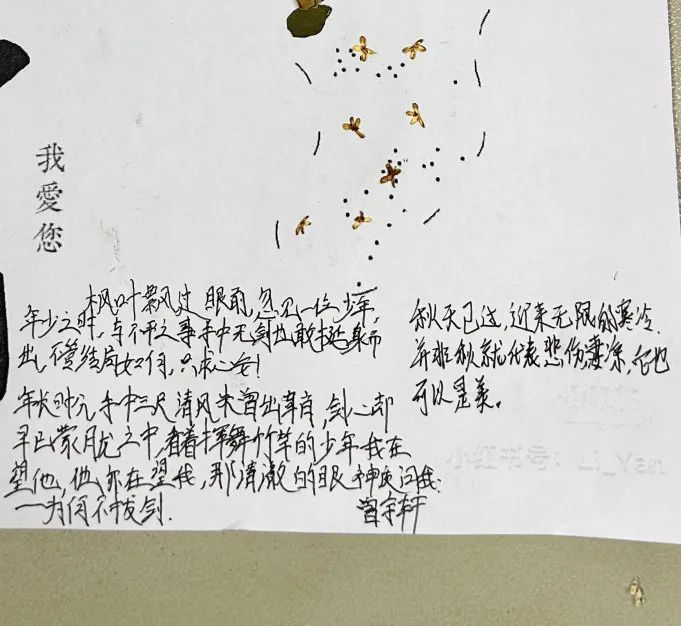 我愛您
枫叶飘过眼前,忽见一位少年,
年少之时,与不平之事手中无剑也敢挺身而
出,不管结局如何,只求心安!
年长时分手中三尺清风未曾出鞘,剑心却
早已蒙尘之中,看着挥舞竹竿的少年我在
望他,他亦在望我,那清澈的眼神质问我:
一为何不拔剑.
曾宇轩
秋天已过,迎来无限的寒冷.
并非秋就代表悲伤凄凉,它也
可以是美。